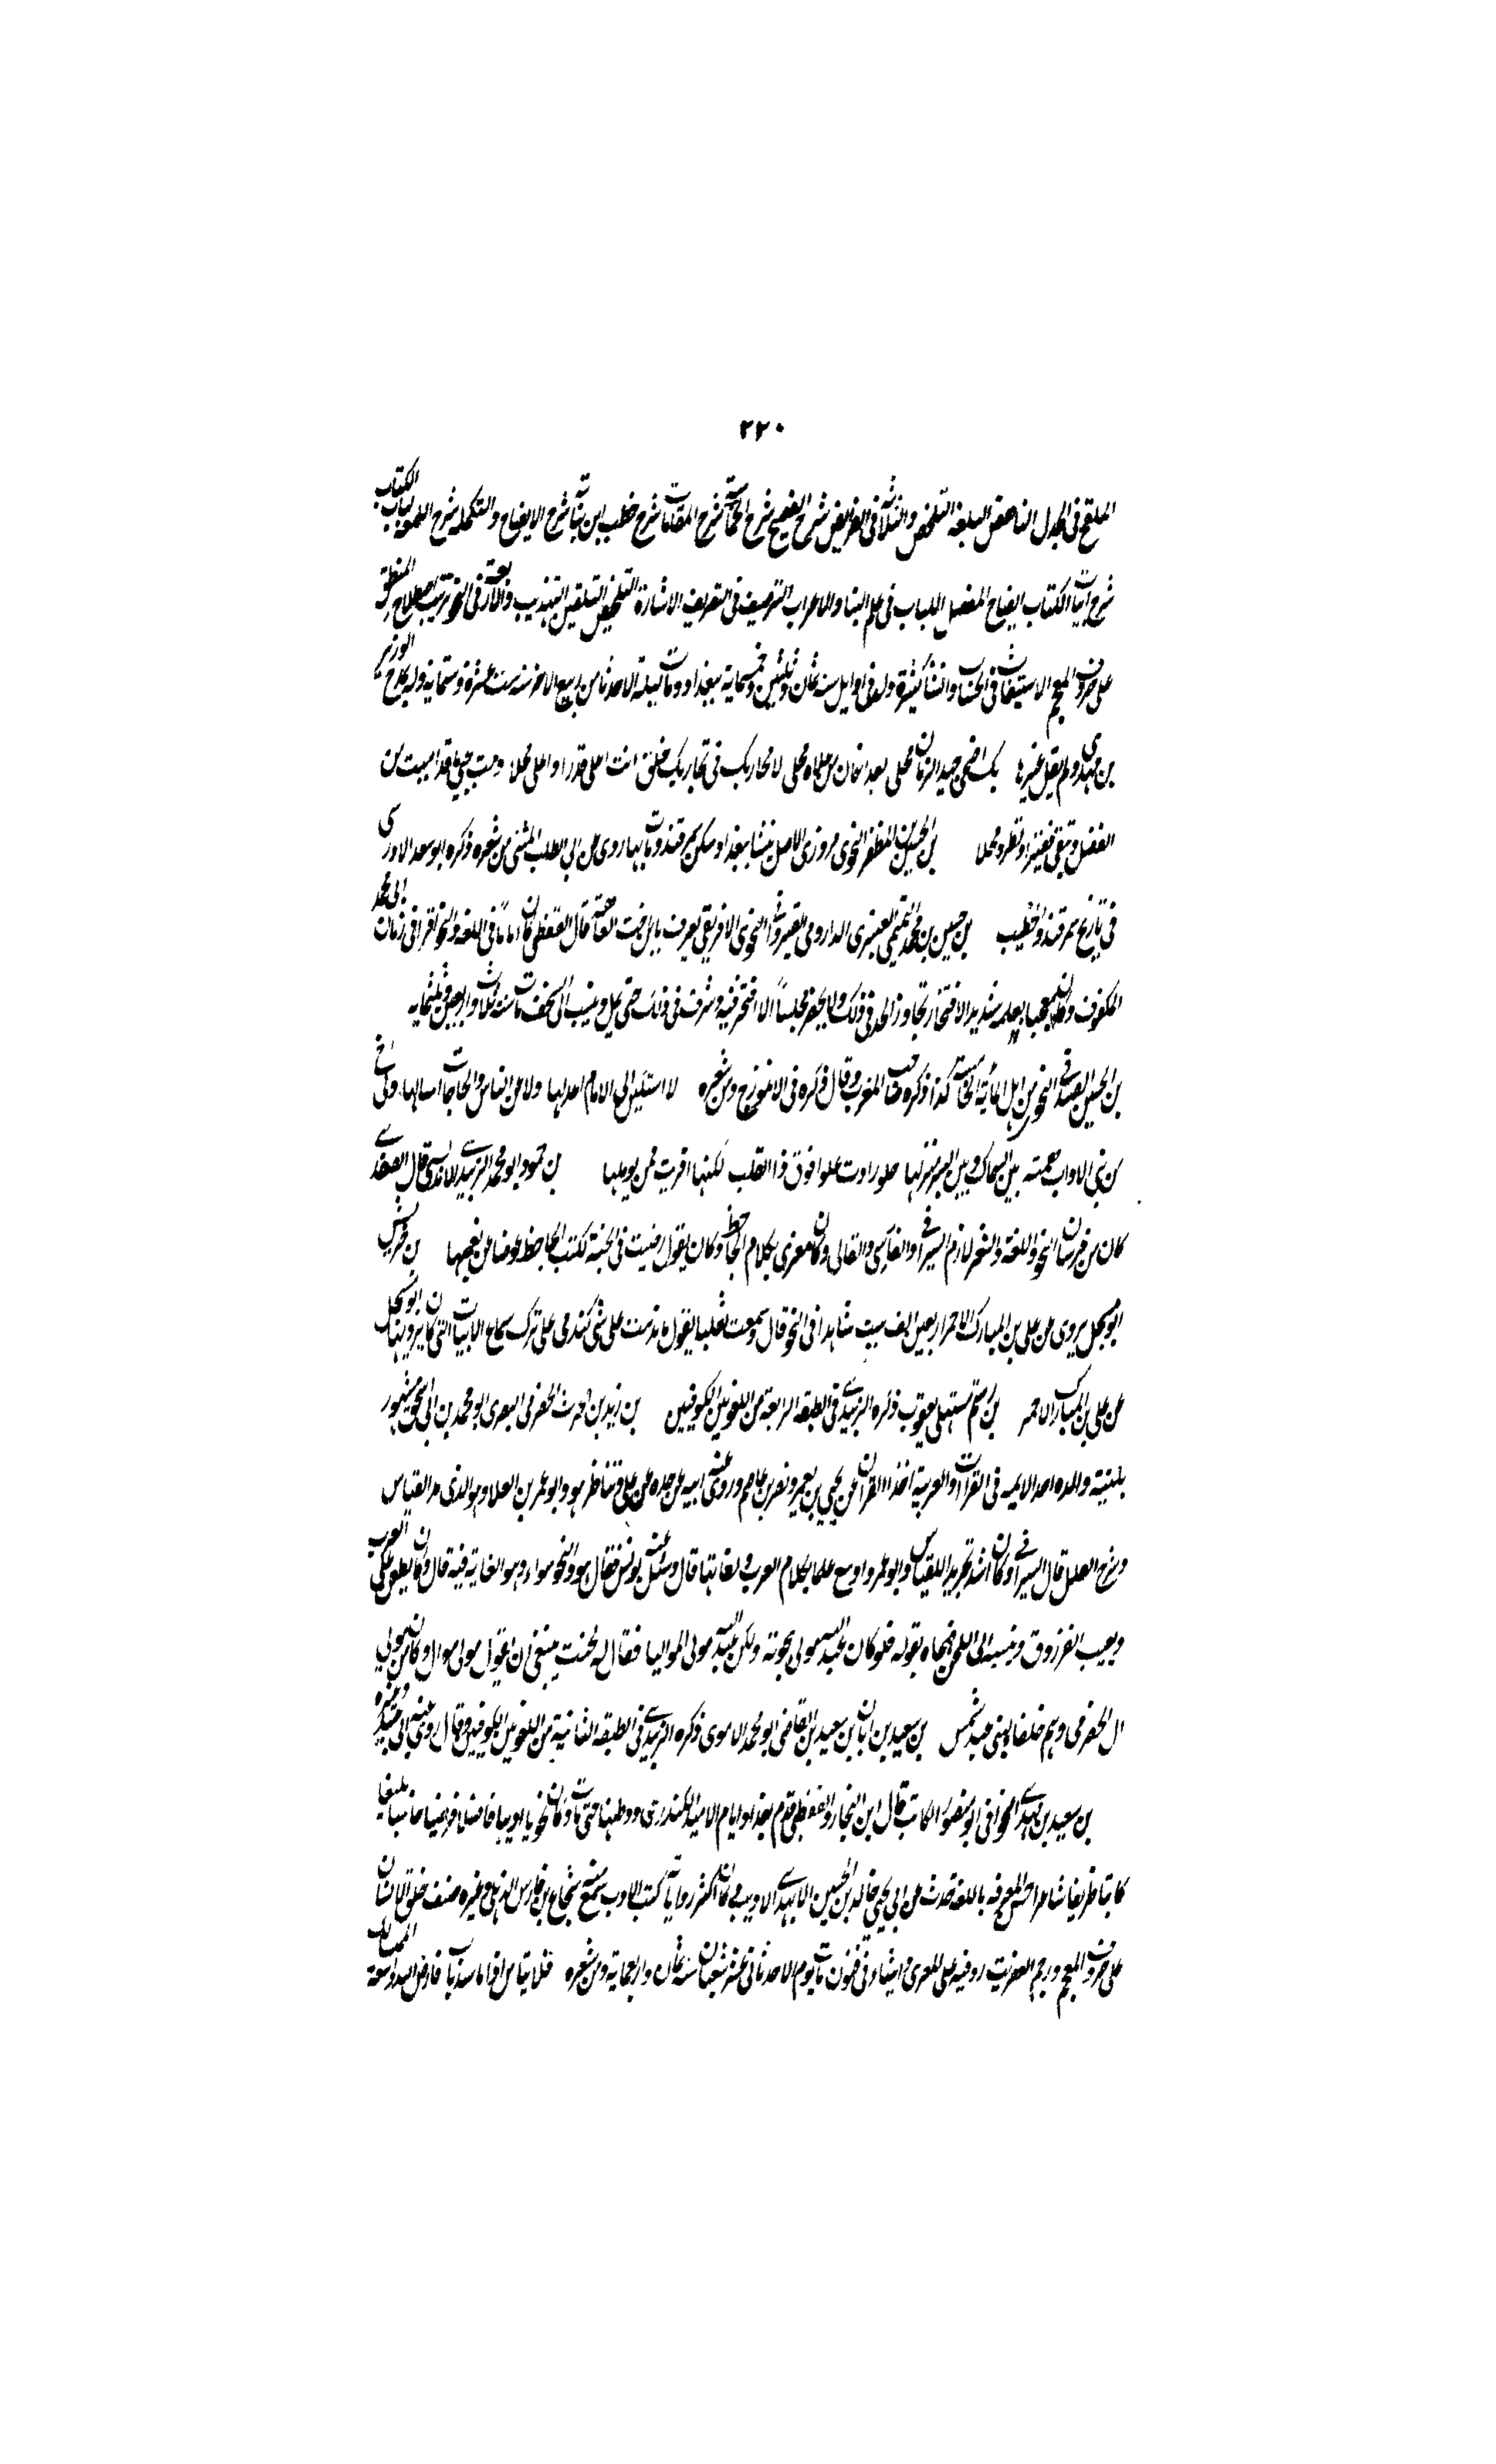 ٢٢٠
الملقح فى الجدل الناهض البلغة التلخيص والثلاثة فى الفرايض شرح الفصيح شرح الحماسة شرح المقامات شرح خطب ابن نباتة شرح الايضاح والتكملة شرح اللمع لباب الكتاب
شرح ابيات الكتاب ايضاح المفصل اللباب فى علل البنا والاعراب الترصيف فى التصريف الاشارة التلخيص التلقين التهذيب والاربعة فى النحو ترتيب اصلاح المنطق
على حروف المعجم الاستيعاب فى الحساب واشيا كثيرة ولد فى اوايل سنه ثمان وثلثين وخمسماية ببغداد ومات ليلة الاحد ثامن ربيع الاخر سنه ست عشرة وستماية وله يمدح الوزير
بن مهدى ولم يقل غيرها بك اضحى جيد الزمان محلى بعد ان كان من حلاه مخلى لا يجاريك فى تجاريك خلق انت اعلى قدرا واعلى محلا دمت تحيى ما قد اميت من
الفضل وتنفى فقيرا وتطرد محلا بن الحسين بن المظفر النحوى مروزى الاصل نشا ببغداد وسكن سمرقند ومات بها روى عن ابى الطيب المتنبى من شعره ذكره ابو سعد الادريسى
فى تاريخ سمرقند والخطيب بن حسين بن محمد التيمى العنبرى الدارومى القيروانى النحوى الافريقى يعرف بابن اخت العاهة قال القفطى كان اماما فى اللغه والنحو قرا فى زمان ابى محمد
المكفوف وكان معجبا بعلمه شديد الافتخار تجاوز الحد فى ذلك ولا يحضر مجلسا الا افتخر فيه وشرف فى ذلك حتى يمل وينسب الى السخف مات سنه ثلاث واربعين وثلثمايه
بن الحسين الصدفى النحوى من اهل المائة الخامسة كذا ذكره صاحب المغرب وقال ذكره فى الانموذج ومن شعره لا استكين الى الايام اعذلها ولا من الناس والحاجات اسالها ولى اخ
من بنى الاداب همته بين السماك وبين النسر منزلها طور ادت علوا فوق ذا القلب لكنها اقربت ممن يوملها بن حمود ابو محمد الزبيدى الاندلسى قال الصفدى
كان من فرسان النحو واللغة والشعر لازم السيرافى والفارسى والقالى وكان مغرى بكلام الجاحظ وكان يقول رضيت فى الجنة بكتب الجاحظ عوضا من نعيمها بن خريش
ابو مسحل يروى عن على بن المبارك الاحمر اربعين الف بيت شاهدا فى النحو قال وسمعت ثعلبا يقول ما ندمت على شئ كندمى على ترك سماع الابيات التى كان يرويها ابو مسحل
عن على بن المبارك الاحمر بن رستم مستملى يعقوب ذكره الزبيدى فى الطبقه الرابعة من اللغويين الكوفيين بن زيد بن الحرث الحضرمى البصرى ابو محمد بن ابى اسحق مشهور
بكنية والده احد الايمه فى القراات والعربية اخذ القران عن يحيى بن يعمر ونصر بن عاصم وروى عن ابيه عن جده عن على وتناظر هو وابو عمر بن العلا وهو الذى مد القياس
وشرح العلل قال السيرافى وكان اشد تجريدا للقياس وابو عمرو اوسع علما بكلام العرب ولغاتها قال وسئل عنه يونس فقال هو والنحو سواء وهو الغاية فيه قال وكان يطعن على العرب
ويعيب الفرزدق وينسبه الى اللحن فهجاه بقوله فلو كان عبد الله مولى هجوته ولكن عبد الله مولى المواليا فقال له لحنت ينبغى ان تقول مولى موال وكان من موالى
ال الحضرمى وهم حلفا بنى عبد شمس بن سعيد بن ابان بن سعيد بن القاضى ابو محمد الاموى ذكره الزبيدى فى الطبقه الثانية من اللغويين الكوفيين وقال روى عنه ابى عبيد وغيره
بن سعيد بن مهدى الخوافى ابو منصور الكاتب قال ابن النجار والقفطى قدم بغداد ايام الامير الكندرى ووطنها حتى مات وكان نحويا اديبا فاضلا فرضيا حاسبا بليغا
كاتبا ظريفا شاعرا حسن المعرفه باللغه حدث عن ابى يحيى خالد بن الحسين الابهرى الاديب وكان اكثر رواياته كتب الادب سمع منه شجاع بن فارس الذهلى وغيره صنف خلق الانسان
على حروف المعجم ورجم العفريت رد فيه على المعرى واشياء فى فنون مات يوم الاحد ثانى عشر شعبان سنه ثمان واربعماية ومن شعره فلا تياس اذا ما سد باب فارض الله واسعة المسالك